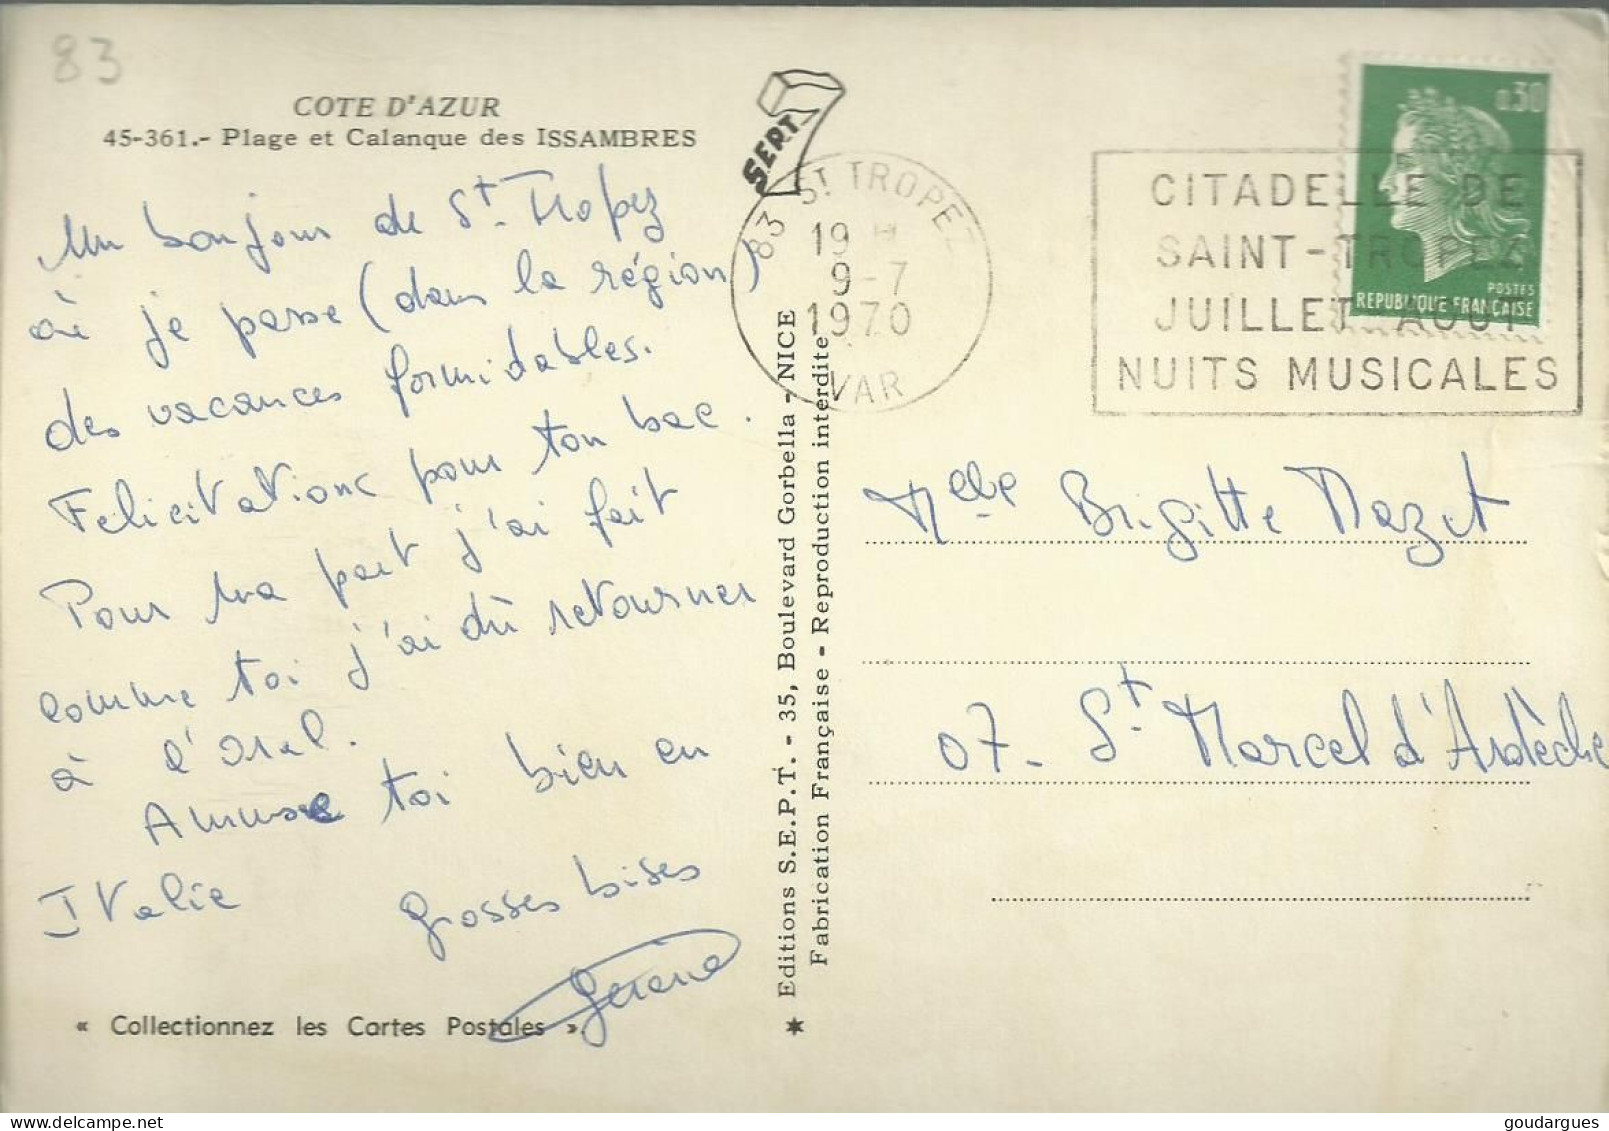 83
COTE D'AZUR
45-361.- Plage et Calanque des ISSAMBRES
Un bonjour de St. Tropez
où je passe (dans la région)
des vacances formidables.
Felicitations pour ton bac.
Pour ma part j'ai fait
comme toi j'ai dû retourner
à l'oral.
Amuse toi bien en
Italie
Grosses bises
« Collectionnez les Cartes Postales ».
Editions S.E.P.T. - 35, Boulevard Gorbella - NICE
Fabrication Française - Reproduction interdite
SEPT
83 ST TROPEZ
19 H
9-7
1970
VAR
CITADELLE DE
SAINT-TROPEZ
JUILLET AOUT
NUITS MUSICALES
0,30
POSTES
REPUBLIQUE FRANÇAISE
Melle Brigitte Mazet
07- St Marcel d'Ardèche
goudargues